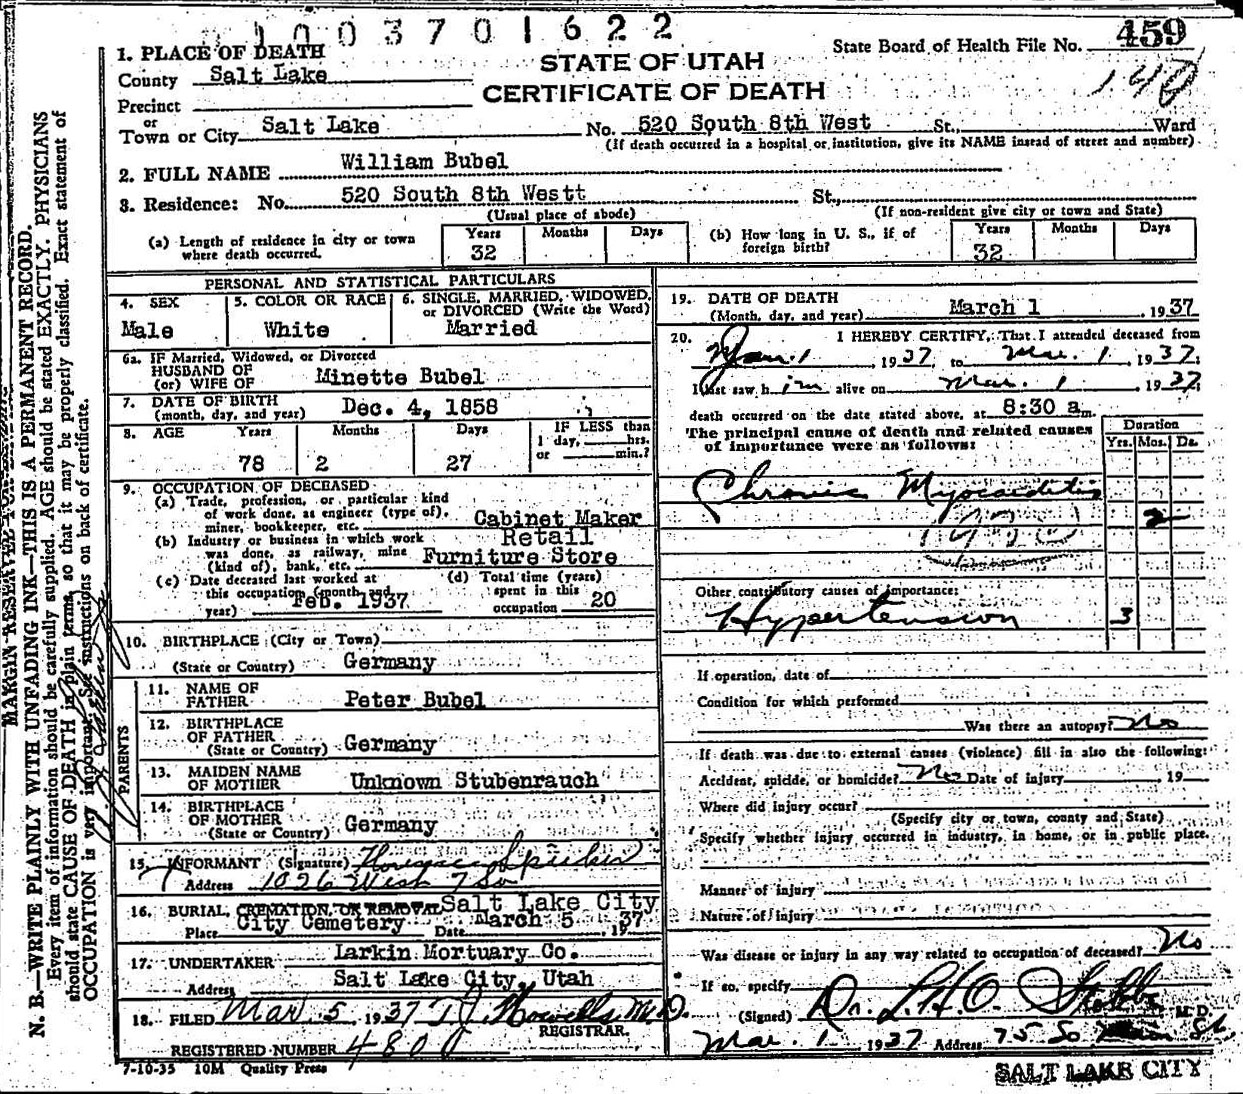 1003701622
1. PLACE OF DEATH
County Salt Lake
Precinct
or
Town or City Salt Lake
STATE OF UTAH
CERTIFICATE OF DEATH
State Board of Health File No. 459
140
No. 520 South 8th West St., Ward
(If death occurred in a hospital or institution, give its NAME instead of street and number)
2. FULL NAME William Bubel
3. Residence: No. 520 South 8th Westt St.,
(Usual place of abode) (If non-resident give city or town and State)
(a) Length of residence in city or town where death occurred. Years 32 Months Days
(b) How long in U. S., if of foreign birth? Years 32 Months Days
PERSONAL AND STATISTICAL PARTICULARS
4. SEX Male
5. COLOR OR RACE White
6. SINGLE, MARRIED, WIDOWED, or DIVORCED (Write the Word) Married
6a. IF Married, Widowed, or Divorced
HUSBAND OF
(or) WIFE OF Minette Bubel
7. DATE OF BIRTH
(month, day, and year) Dec. 4, 1858
8. AGE Years Months Days IF LESS than
78 2 27 1 day, hrs.
or min.?
9. OCCUPATION OF DECEASED
(a) Trade, profession, or particular kind
of work done, as engineer (type of),
miner, bookkeeper, etc. Cabinet Maker
(b) Industry or business in which work Retail
was done, as railway, mine Furniture Store
(kind of), bank, etc.
(c) Date deceased last worked at
this occupation (month and
year) Feb. 1937
(d) Total time (years)
spent in this
occupation 20
10. BIRTHPLACE (City or Town)
(State or Country) Germany
PARENTS
11. NAME OF
FATHER Peter Bubel
12. BIRTHPLACE
OF FATHER
(State or Country) Germany
13. MAIDEN NAME
OF MOTHER Unknown Stubenrauch
14. BIRTHPLACE
OF MOTHER
(State or Country) Germany
15. INFORMANT (Signature) Florence
Address 1026 West 7 So
16. BURIAL, CREMATION, OR REMOVAL Salt Lake City
Place City Cemetery Date March 5 1937
17. UNDERTAKER Larkin Mortuary Co.
Address Salt Lake City, Utah
18. FILED Mar 5 1937 T J Howells, M.D.
REGISTRAR.
REGISTERED NUMBER 480
7-10-35 10M Quality Press
19. DATE OF DEATH
(Month, day, and year) March 1 1937
20. I HEREBY CERTIFY, That I attended deceased from
Jan. 1 1937 to Mar. 1 1937;
I last saw him alive on Mar. 1 1937;
death occurred on the date stated above, at 8:30 am.
The principal cause of death and related causes
of importance were as follows:
Duration
Yrs. Mos. Ds.
Chronic Myocarditis
2
Other contributory causes of importance:
Hypertension 3
If operation, date of
Condition for which performed
Was there an autopsy? No
If death was due to external causes (violence) fill in also the following:
Accident, suicide, or homicide? No Date of injury 19
Where did injury occur?
(Specify city or town, county and State)
Specify whether injury occurred in industry, in home, or in public place.
Manner of injury
Nature of injury
Was disease or injury in any way related to occupation of deceased? No
If so, specify
(Signed) Dr. L.H.O. M. D.
Mar. 1 1937 Address 75 So
SALT LAKE CITY
MARGIN RESERVED FOR BINDING
N. B.—WRITE PLAINLY WITH UNFADING INK—THIS IS A PERMANENT RECORD.
Every item of information should be carefully supplied. AGE should be stated EXACTLY. PHYSICIANS
should state CAUSE OF DEATH in plain terms, so that it may be properly classified. Exact statement of
OCCUPATION is very important. See instructions on back of certificate.